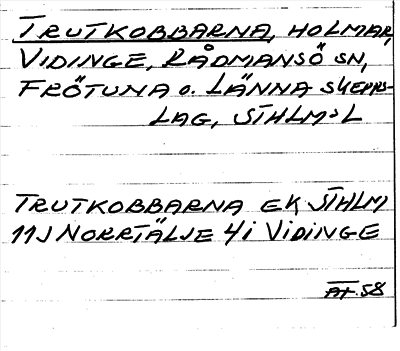 TRUTKOBBARNA, HOLMAR,
VIDINGE, RÅDMANSÖ SN,
FRÖTUNA o. LÄNNA SKEPPS-
LAG, STHLMSL
TRUTKOBBARNA EK, STHLM
11J NORRTÄLJE 4i VIDINGE
AT. 58